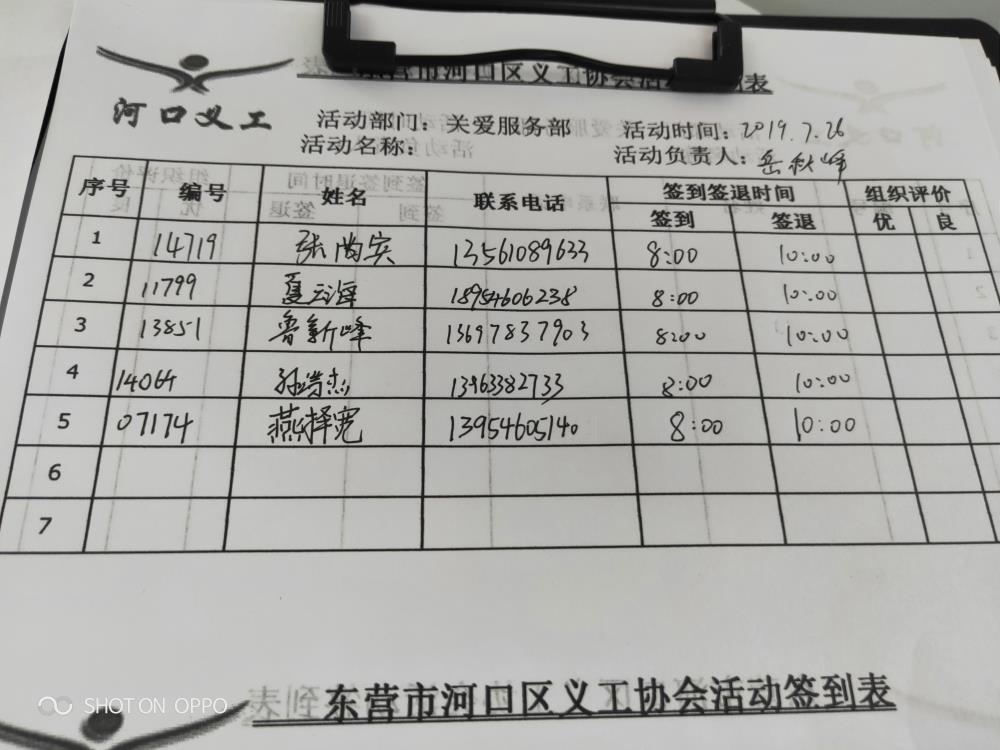 东营市河口区义工协会活动签到表
河口义工
活动部门：关爱服务部 活动时间：2019.7.26
活动名称： 活动负责人：岳秋峰
序号 编号 姓名 联系电话 签到签退时间 组织评价
签到 签退 优 良
1 14719 张尚实 13561089633 8:00 10:00
2 11799 夏云泽 18954606238 8:00 10:00
3 13851 鲁新峰 13697837903 8:00 10:00
4 14064 孙浩杰 13963382733 8:00 10:00
5 07174 燕择宽 13954605140 8:00 10:00
6
7
东营市河口区义工协会活动签到表
SHOT ON OPPO